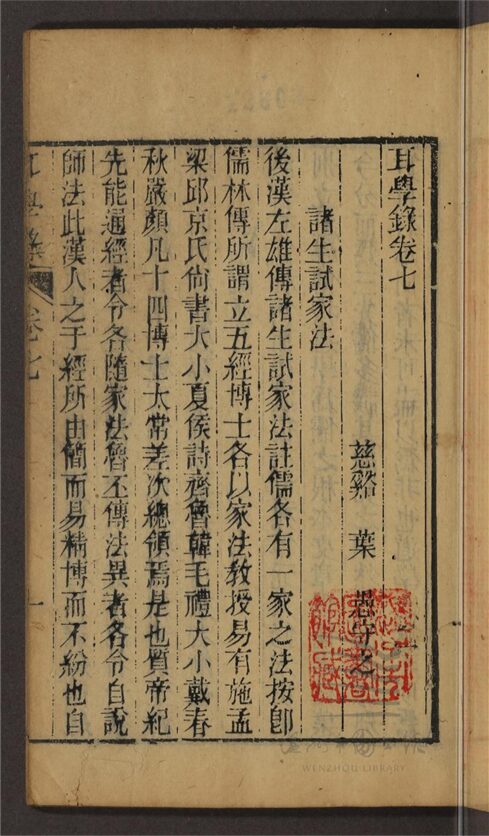 耳學錄卷七
慈谿 葉 愚守之
諸生試家法
後漢左雄傳諸生試家法註儒各有一家之法按卽
儒林傳所謂立五經博士各以家法教授易有施孟
梁邱京氏尙書大小夏侯詩齊魯韓毛禮大小戴春
秋嚴顏凡十四博士太常差次總領焉是也質帝紀
先能通經者令各隨家法魯丕傳法異者各令自說
師法此漢人之于經所由簡而易精博而不紛也自
耳學錄 卷七 一
WENZHOU LIBRARY